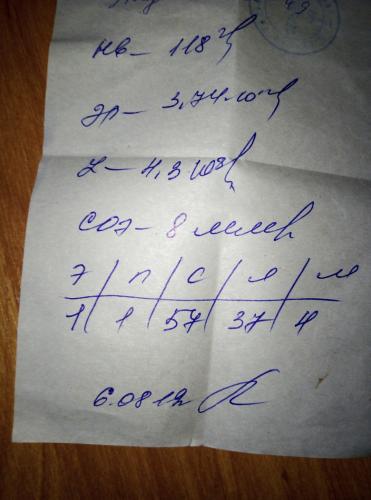 Hb – 118 г/л
Эр – 3,74·10¹²/л
L – 4,3·10⁹/л
СОЭ – 8 мм/ч
Э | П | С | Л | М
1 | 1 | 57 | 37 | 4
6.08.12